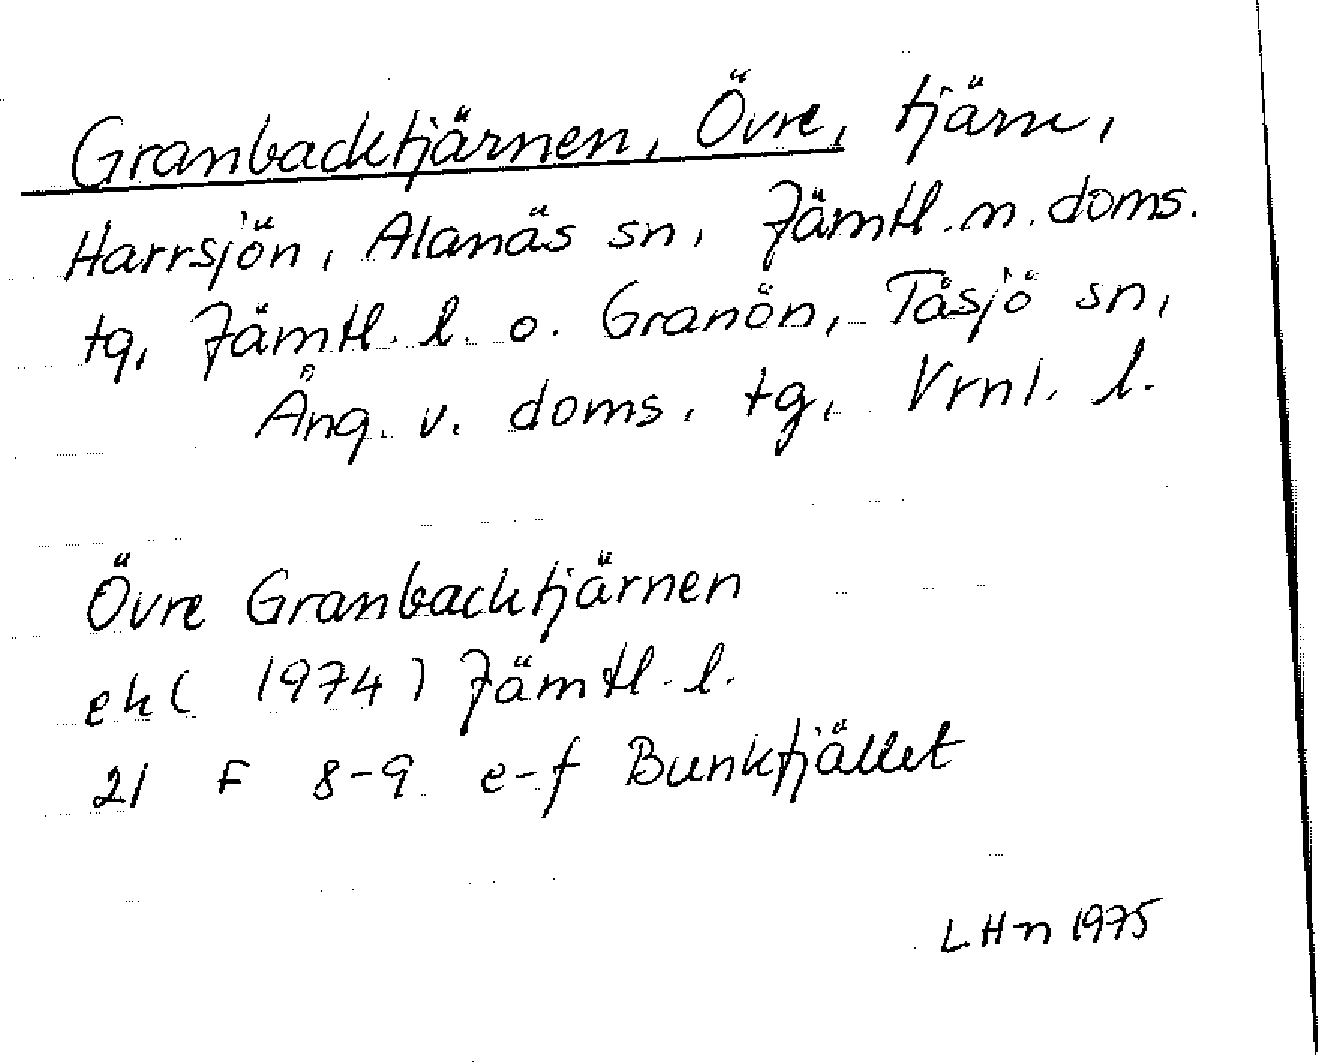 Granbacktjärnen, Övre, tjärn,
Harrsjön, Alanäs sn, Jämtl. n. doms.
tg, Jämtl. l. o. Granön, Tåsjö sn,
Ång. v. doms. tg, Vrnl. l.
Övre Granbacktjärnen
ek (1974) Jämtl. l.
21 F 8-9 e-f Bunkfjället
LHn 1975